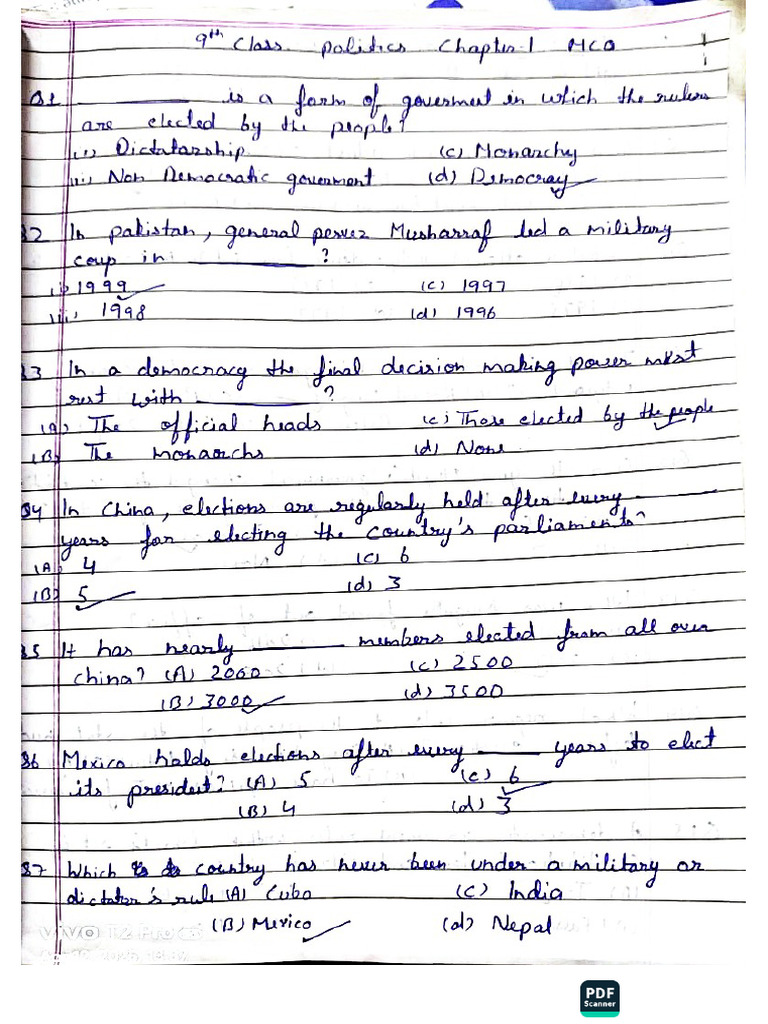 9th Class politics Chapter-1 MCQ
Q1 ________ is a form of goverment in which the rulers
are elected by the people?
(i) Dictatarship (c) Monarchy
(ii) Non Democratic goverment (d) Democray
Q2 In pakistan, general pervez Musharraf led a military
coup in ________ ?
(i) 1999 (c) 1997
(ii) 1998 (d) 1996
Q3 In a democracy the final decision making power must
rest with ________ ?
(A) The official heads (c) Those elected by the people
(B) The monarchs (d) None
Q4 In China, elections are regularly held after every ________
years for electing the country's parliament?
(A) 4 (c) 6
(B) 5 (d) 3
Q5 It has nearly ________ members elected from all over
china? (A) 2060 (c) 2500
(B) 3000 (d) 3500
Q6 Mexico holds elections after every ____ years to elect
its president? (A) 5 (c) 6
(B) 4 (d) 3
Q7 Which country has never been under a military or
dictator's rule (A) Cuba (c) India
(B) Mexico (d) Nepal
PDF
Scanner